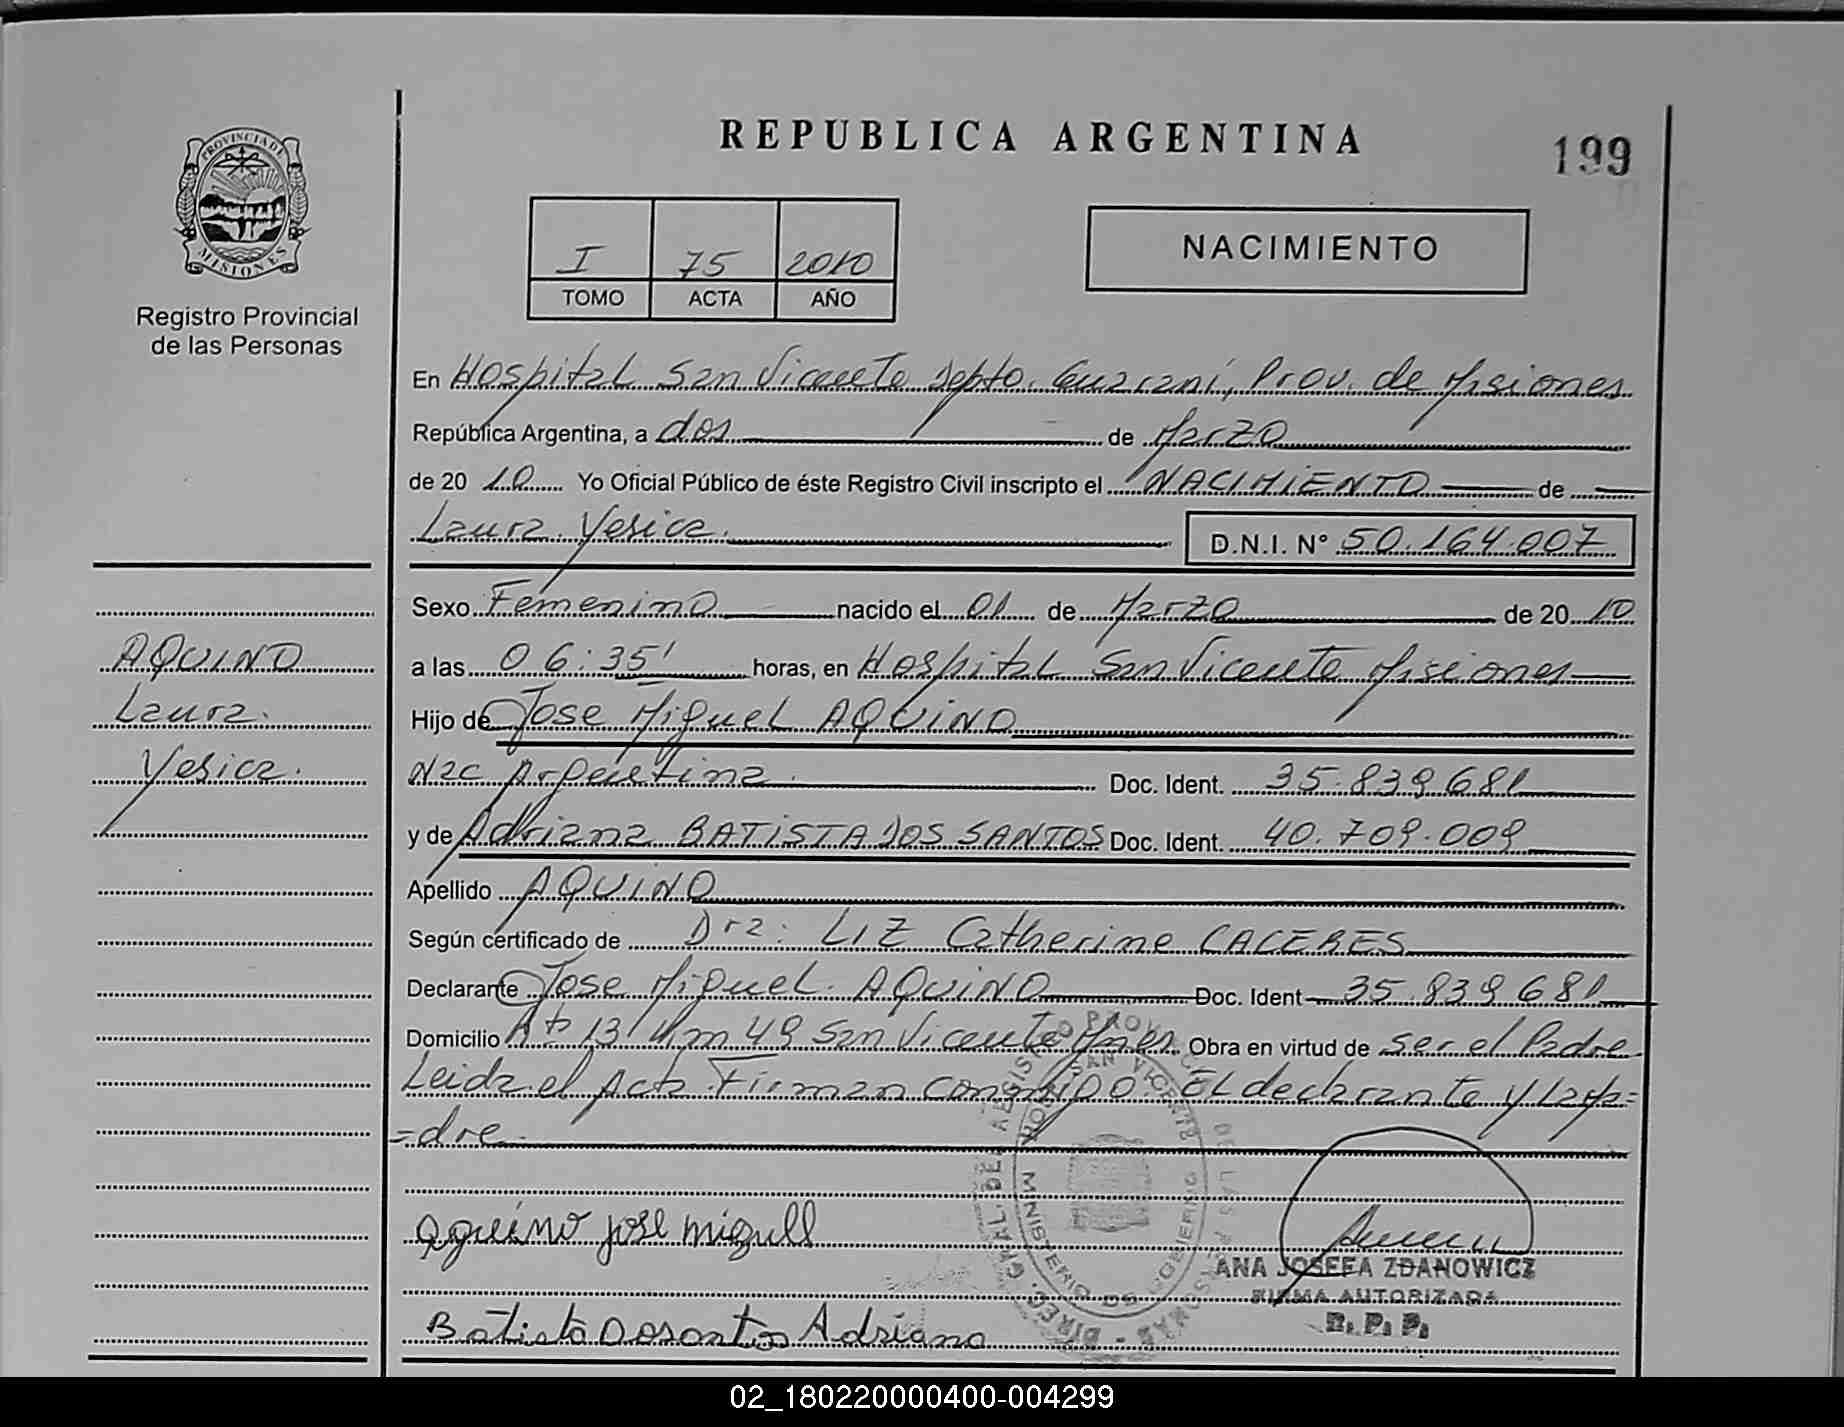 REPUBLICA ARGENTINA
199
PROVINCIA DE
MISIONES
Registro Provincial
de las Personas
I 75 2010
TOMO ACTA AÑO
NACIMIENTO
En Hospital San Vicente Depto. Guaraní, Prov. de Misiones
República Argentina, a dos de Marzo
de 20 10 Yo Oficial Público de éste Registro Civil inscripto el NACIMIENTO de
Laura Yesica.
D.N.I. N° 50.164.007
Sexo Femenino nacido el 01 de Marzo de 20 10
a las 06:35' horas, en Hospital San Vicente Misiones
Hijo de Jose Miguel AQUINO
Nac Argentina. Doc. Ident. 35.839.681
y de Adriana BATISTA DOS SANTOS Doc. Ident. 40.709.009
Apellido AQUINO
Según certificado de Dra: LIZ Catherine CACERES
Declarante Jose Miguel AQUINO Doc. Ident 35.839.681
Domicilio Rta 13 Km 49 San Vicente Mnes Obra en virtud de ser el Padre
Leida el Acta Firman conmigo El declarante y La Ma=
=dre
AQUINO
Laura.
Yesica.
Aquino jose miguel
Batista Dosantos Adriana
SAN VICENTE
MINISTERIO DE GOBIERNO
ANA JOSEFA ZDANOWICZ
FIRMA AUTORIZADA
R. P. P.
02_180220000400-004299